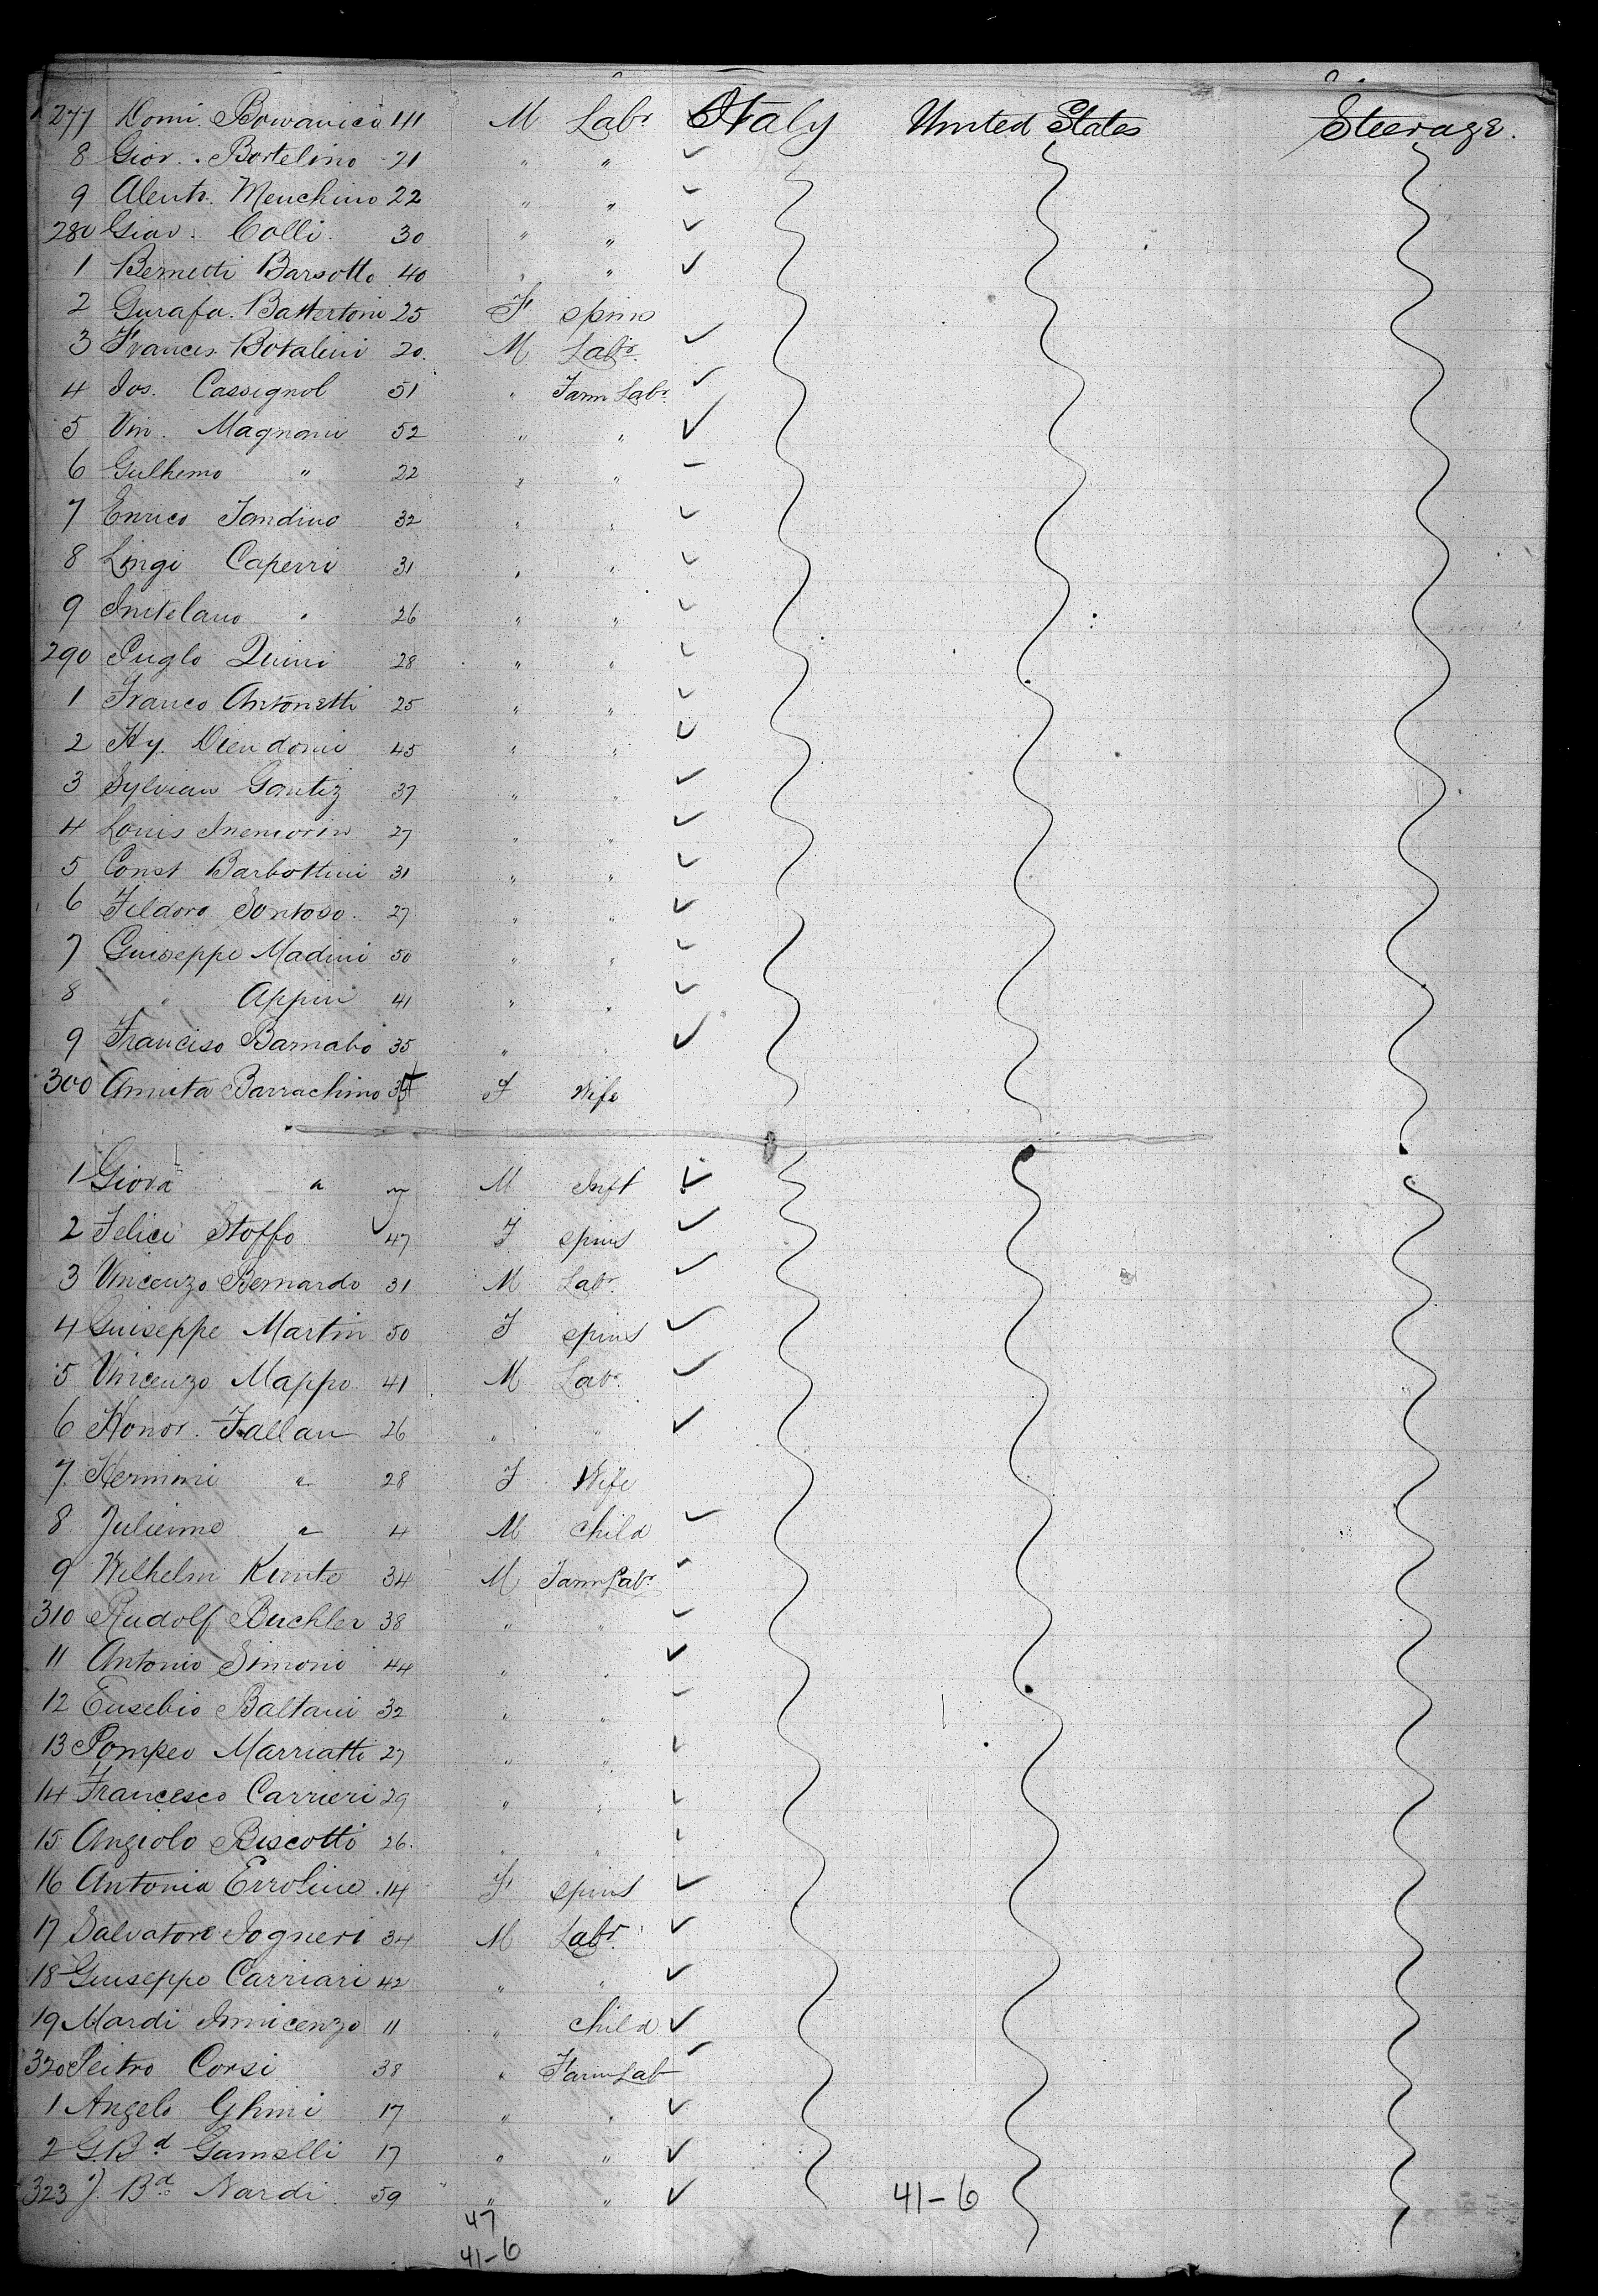 277 Domi. Bowanico 41 M Labr Italy United States Steerage.
8 Giov. Bortelino 21 " "
9 Alentr. Menchino 22 " "
280 Giov. Colli. 30 " "
1 Bernetti Barsotto 40 " "
2 Gurafa. Battertoni 25 F spins
3 Frances. Botalini 20. M Labr.
4 Jos. Cassignol 51 " Farm Labr.
5 Vin. Magnani 52 " "
6 Gulhemo " 22 " "
7 Enrico Jandino 32 " "
8 Lingi Caperri 31 " "
9 Initelano " 26 " "
290 Puglo Quini 28 " "
1 Franco Antonetti 25 " "
2 Hy. Diendoni 45 " "
3 Sylvian Gantiz 37 " "
4 Louis Inemorin 27 " "
5 Const Barbottini 31 " "
6 Fildoro Sontoso. 27 " "
7 Guiseppe Madini 50 " "
8 " Appin 41 " "
9 Franciso Barnabo 35 " "
300 Annita Barrachino 35 F Wife
1 Giova " M Inft
2 Felici Stoffo 47 F spins
3 Vincenzo Bernardo 31 M Labr.
4 Guiseppe Martin 50 F spins
5 Vincenzo Mappo 41 M Labr.
6 Honor. Fallan 26 " "
7. Hermini " 28 F Wife
8 Julienne " 4 M child
9 Wilhelm Kunte 34 M Farm Labr
310 Rudolf Buchler 38 " "
11 Antonio Simoni 44 " "
12 Eusebio Baltani 32 " "
13 Pompeo Marriatti 27 " "
14 Francesco Carrieri 29 " "
15 Angiolo Biscotti 26. " "
16 Antonia Erroline 14 F spins
17 Salvatore Jogneri 34 M Labr.
18 Guiseppe Carriari 42 " "
19 Mardi Innicenzo 11 " child
320 Peitro Corsi 38 " Farm Lab
1 Angelo Ghini 17 " "
2 G. Bd Gamelli 17 " "
323 J. Bd. Nardi. 59 " " 41-6
47
41-6